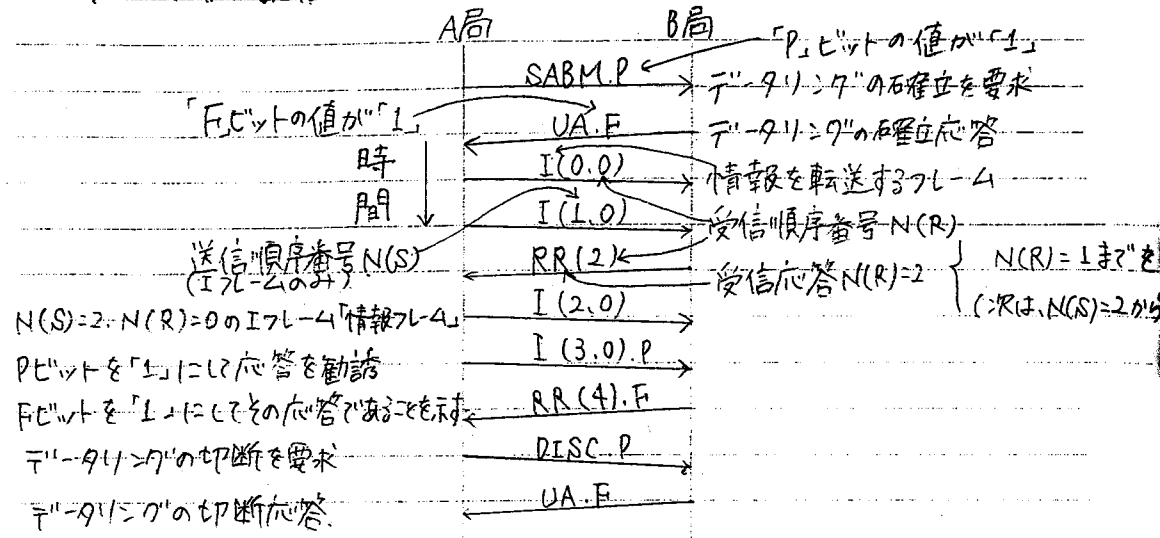 A局 B局
「P」ビットの値が「1」
SABM.P データリングの確立を要求
「F」ビットの値が「1」 UA.F データリングの確立応答
時間
I(0.0) 情報を転送するフレーム
I(1.0) 受信順序番号N(R)
送信順序番号N(S)
(Iフレームのみ)
RR(2) 受信応答N(R)=2 N(R)=1までを
(次は、N(S)=2から
N(S)=2.N(R)=0のIフレーム「情報フレーム」 I(2.0)
Pビットを「1」にして応答を勧誘 I(3.0).P
Fビットを「1」にしてその応答であることを示す RR(4).F
データリングの切断を要求 DISC.P
データリングの切断応答. UA.F